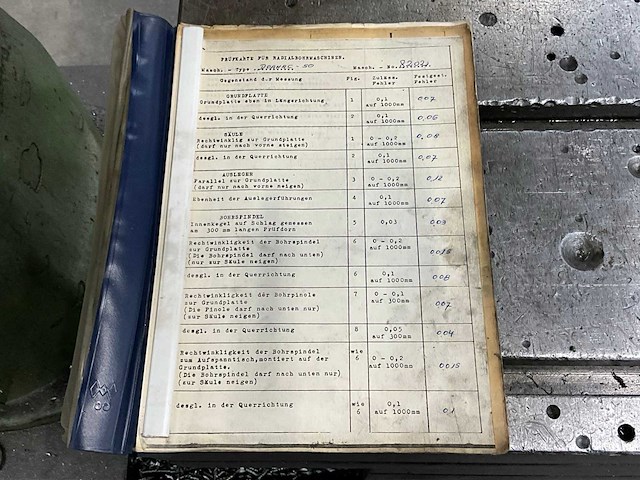 PRÜFKARTE FÜR RADIALBOHRMASCHINEN.
Masch. - Type - 50 Masch. - No.
Gegenstand der Messung Fig. Zuläss. Fehler Festgest. Fehler
GRUNDPLATTE
Grundplatte eben in Längsrichtung 1 0,1 auf 1000mm 0.07
desgl. in der Querrichtung 2 0,1 auf 1000mm 0,06
SÄULE
Rechtwinklig zur Grundplatte 1 0 - 0,2 auf 1000mm 0,08
(darf nur nach vorne steigen)
desgl. in der Querrichtung 2 0,1 auf 1000mm 0,07
AUSLEGER
Parallel zur Grundplatte 3 0 - 0,2 auf 1000mm 0,12
(darf nur nach vorne neigen)
Ebenheit der Auslegerführungen 4 0,1 auf 1000mm 0,07
BOHRSPINDEL
Innenkegel auf Schlag gemessen 5 0,03 003
am 300 mm langen Prüfdorn
Rechtwinkligkeit der Bohrspindel 6 0 - 0,2 auf 1000mm 0015
zur Grundplatte
(Die Bohrspindel darf nach unten)
(nur zur Säule neigen)
desgl. in der Querrichtung 6 0,1 auf 1000mm 008
Rechtwinkligkeit der Bohrpinole 7 0 - 0,1 auf 300mm 007
zur Grundplatte
(Die Pinole darf nach unten nur)
(zur Säule neigen)
desgl. in der Querrichtung 8 0,05 auf 300mm 004
Rechtwinkligkeit der Bohrspindel wie 6 0 - 0,2 auf 1000mm 0015
zum Aufspanntisch,montiert auf der
Grundplatte.
(Die Bohrspindel darf nach unten nur)
(zur Säule neigen)
desgl. in der Querrichtung wie 6 0,1 auf 1000mm 01